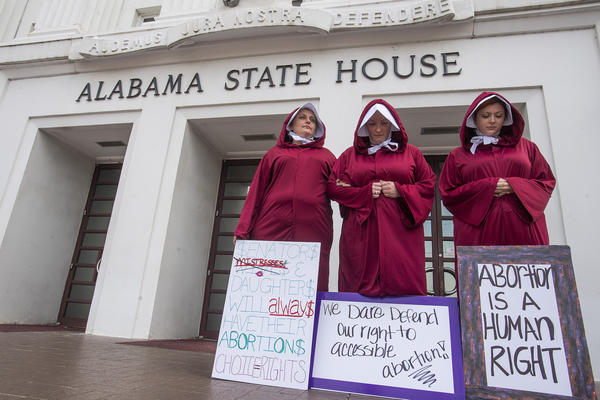 AUDEMUS JURA NOSTRA DEFENDERE
ALABAMA STATE HOUSE
$ENATOR$
MISTRESSE$
&
DAUGHTER$
WILL alway$
HAVE THEIR
ABORTION$
CHOICE RIGHTS
We Dare Defend
our right to
accessible
abortion!
ABORTION
IS A
HUMAN
RIGHT